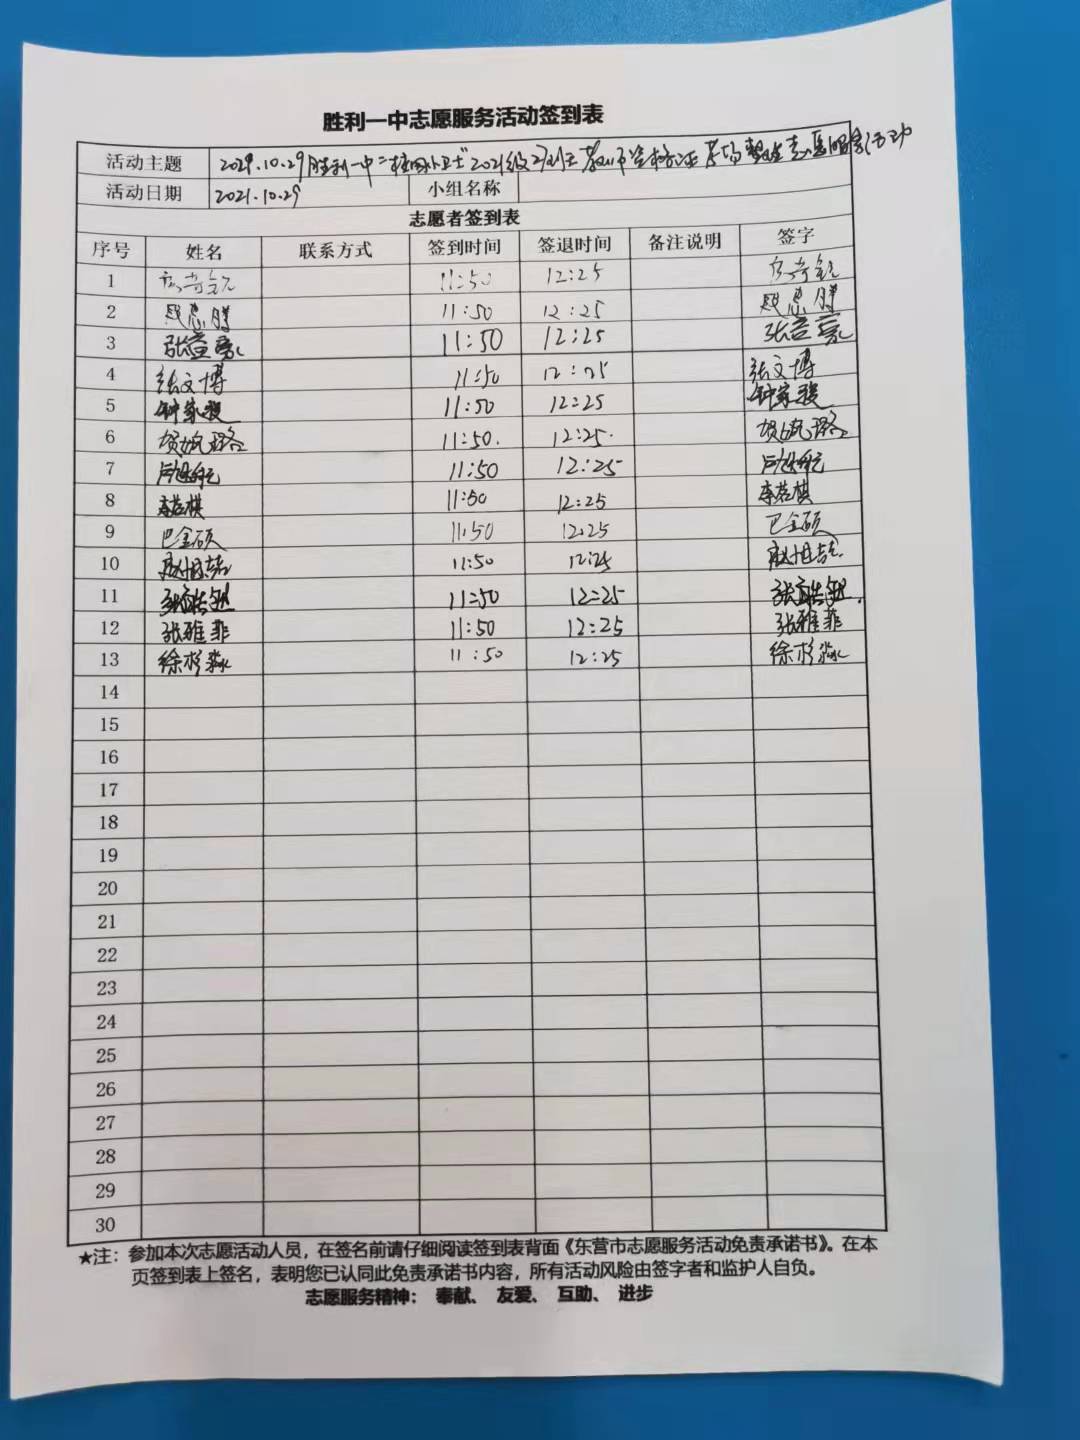 胜利一中志愿服务活动签到表
活动主题 2021.10.29胜利一中"校园小卫士"2021级27班教师资格证考场整理志愿服务活动
活动日期 2021.10.29 小组名称
志愿者签到表
序号 姓名 联系方式 签到时间 签退时间 备注说明 签字
1 11:50 12:25
2 11:50 12:25
3 11:50 12:25
4 张文博 11:50 12:25 张文博
5 钟家骏 11:50 12:25 钟家骏
6 11:50. 12:25.
7 11:50 12:25
8 李若棋 11:50 12:25 李若棋
9 巴金硕 11:50 12:25 巴金硕
10 11:50 12:25
11 11:50 12:25
12 张雅菲 11:50 12:25 张雅菲
13 徐杉淼 11:50 12:25 徐杉淼
14
15
16
17
18
19
20
21
22
23
24
25
26
27
28
29
30
★注：参加本次志愿活动人员，在签名前请仔细阅读签到表背面《东营市志愿服务活动免责承诺书》。在本
页签到表上签名，表明您已认同此免责承诺书内容，所有活动风险由签字者和监护人自负。
志愿服务精神： 奉献、 友爱、 互助、 进步